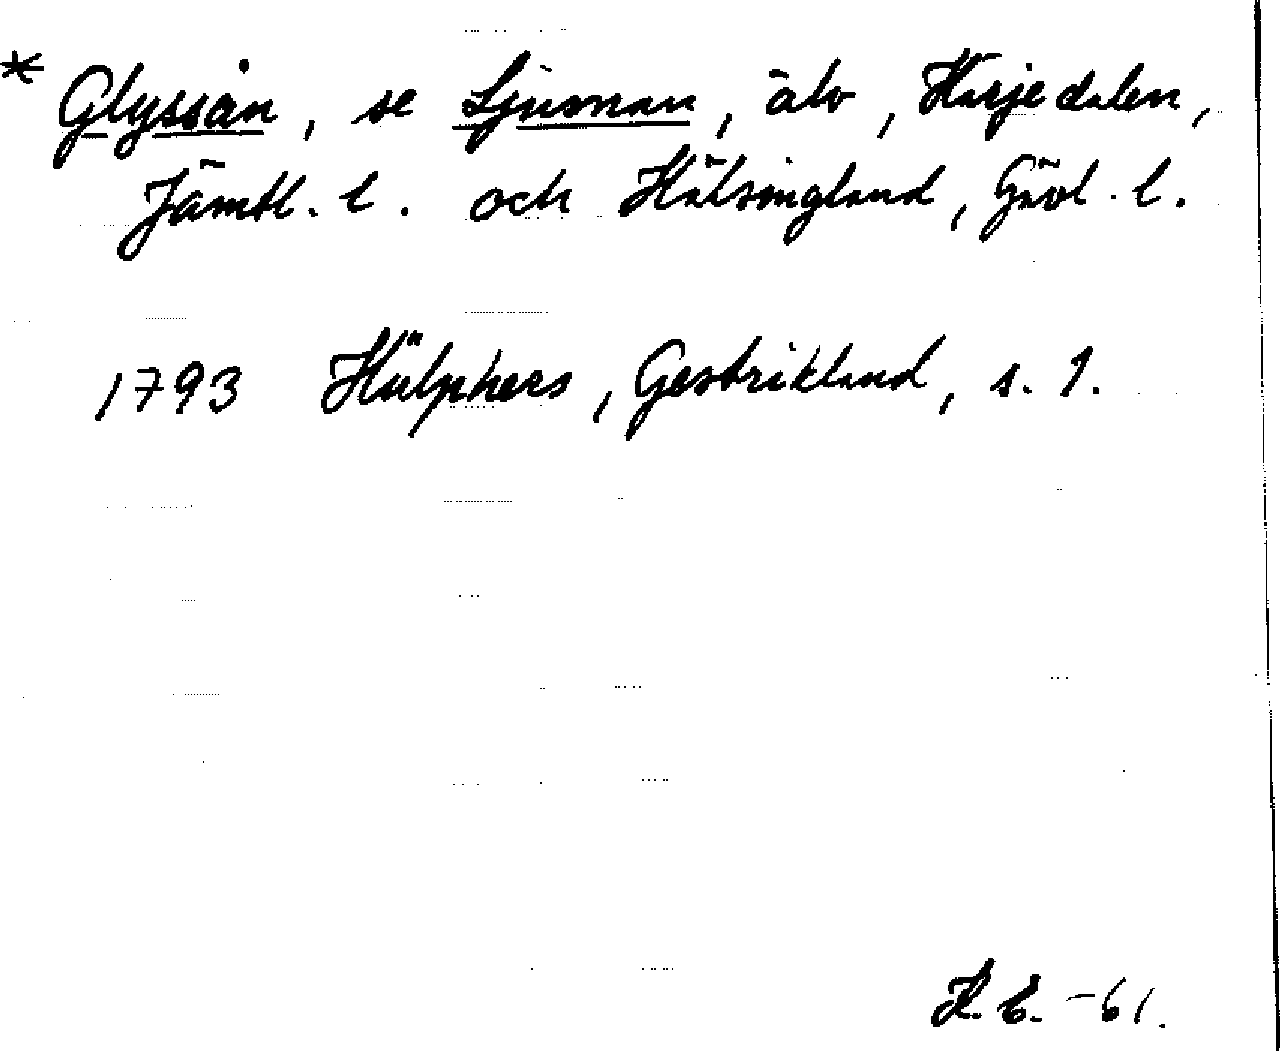 * Glyssån, se Ljusnan, älv, Härjedalen,
Jämtl. l. och Hälsingland, Gävl. l.
1793 Hülphers, Gestrikland, s. 1.
H. C. -61.